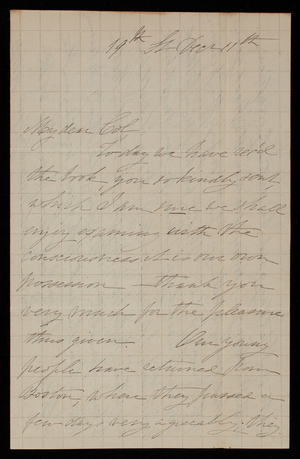 19th St Dec 11th
My dear Col
Today we have rec'd
the book you so kindly sent,
which I am sure we shall
enjoy examing with the
consciousness it is our own
possession – thank you
very much for the pleasure
thus given. Our young
people have returned from
Boston, where they passed a
few days very agreeably. They